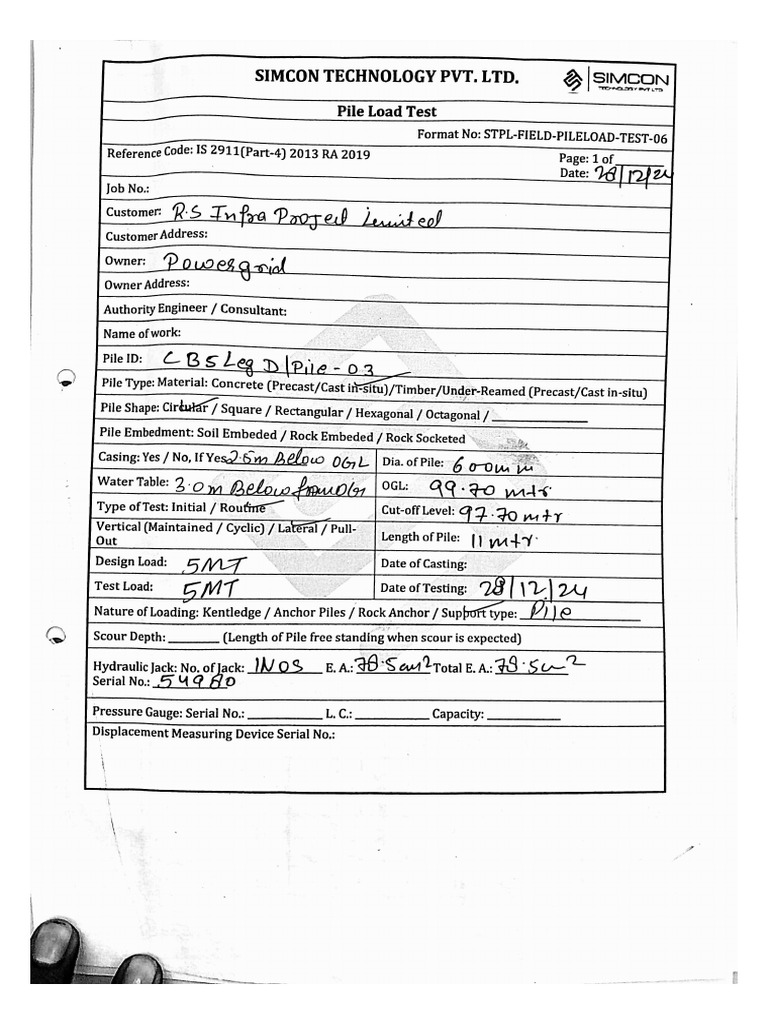 SIMCON TECHNOLOGY PVT. LTD.
SIMCON
TECHNOLOGY PVT LTD
Pile Load Test
Format No: STPL-FIELD-PILELOAD-TEST-06
Reference Code: IS 2911(Part-4) 2013 RA 2019
Page: 1 of ______
Date: 28/12/24
Job No.:
Customer: R.S Infra Project Limited
Customer Address:
Owner: Powergrid
Owner Address:
Authority Engineer / Consultant:
Name of work:
Pile ID: CB5 Leg D/Pile - 03
Pile Type: Material: Concrete (Precast/Cast in-situ)/Timber/Under-Reamed (Precast/Cast in-situ)
Pile Shape: Circular / Square / Rectangular / Hexagonal / Octagonal / ____________
Pile Embedment: Soil Embeded / Rock Embeded / Rock Socketed
Casing: Yes / No, If Yes 2.5m Below OGL
Dia. of Pile: 600mm
Water Table: 3.0m Below from OGL
OGL: 99.70 mtr
Type of Test: Initial / Routine
Cut-off Level: 97.70 mtr
Vertical (Maintained / Cyclic) / Lateral / Pull-
Out
Length of Pile: 11 mtr.
Design Load: 5MT
Date of Casting:
Test Load: 5MT
Date of Testing: 28/12/24
Nature of Loading: Kentledge / Anchor Piles / Rock Anchor / Support type: Pile
Scour Depth: ______ (Length of Pile free standing when scour is expected)
Hydraulic Jack: No. of Jack: 1NOS E. A.: 78.5cm2 Total E. A.: 78.5cm2
Serial No.:
Pressure Gauge: Serial No.: __________ L. C.: __________ Capacity: __________
Displacement Measuring Device Serial No.: